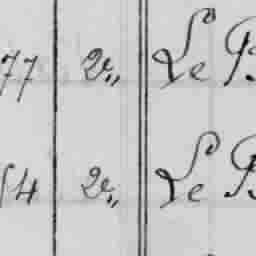 77 2e,, Le B
54 2e,, Le B